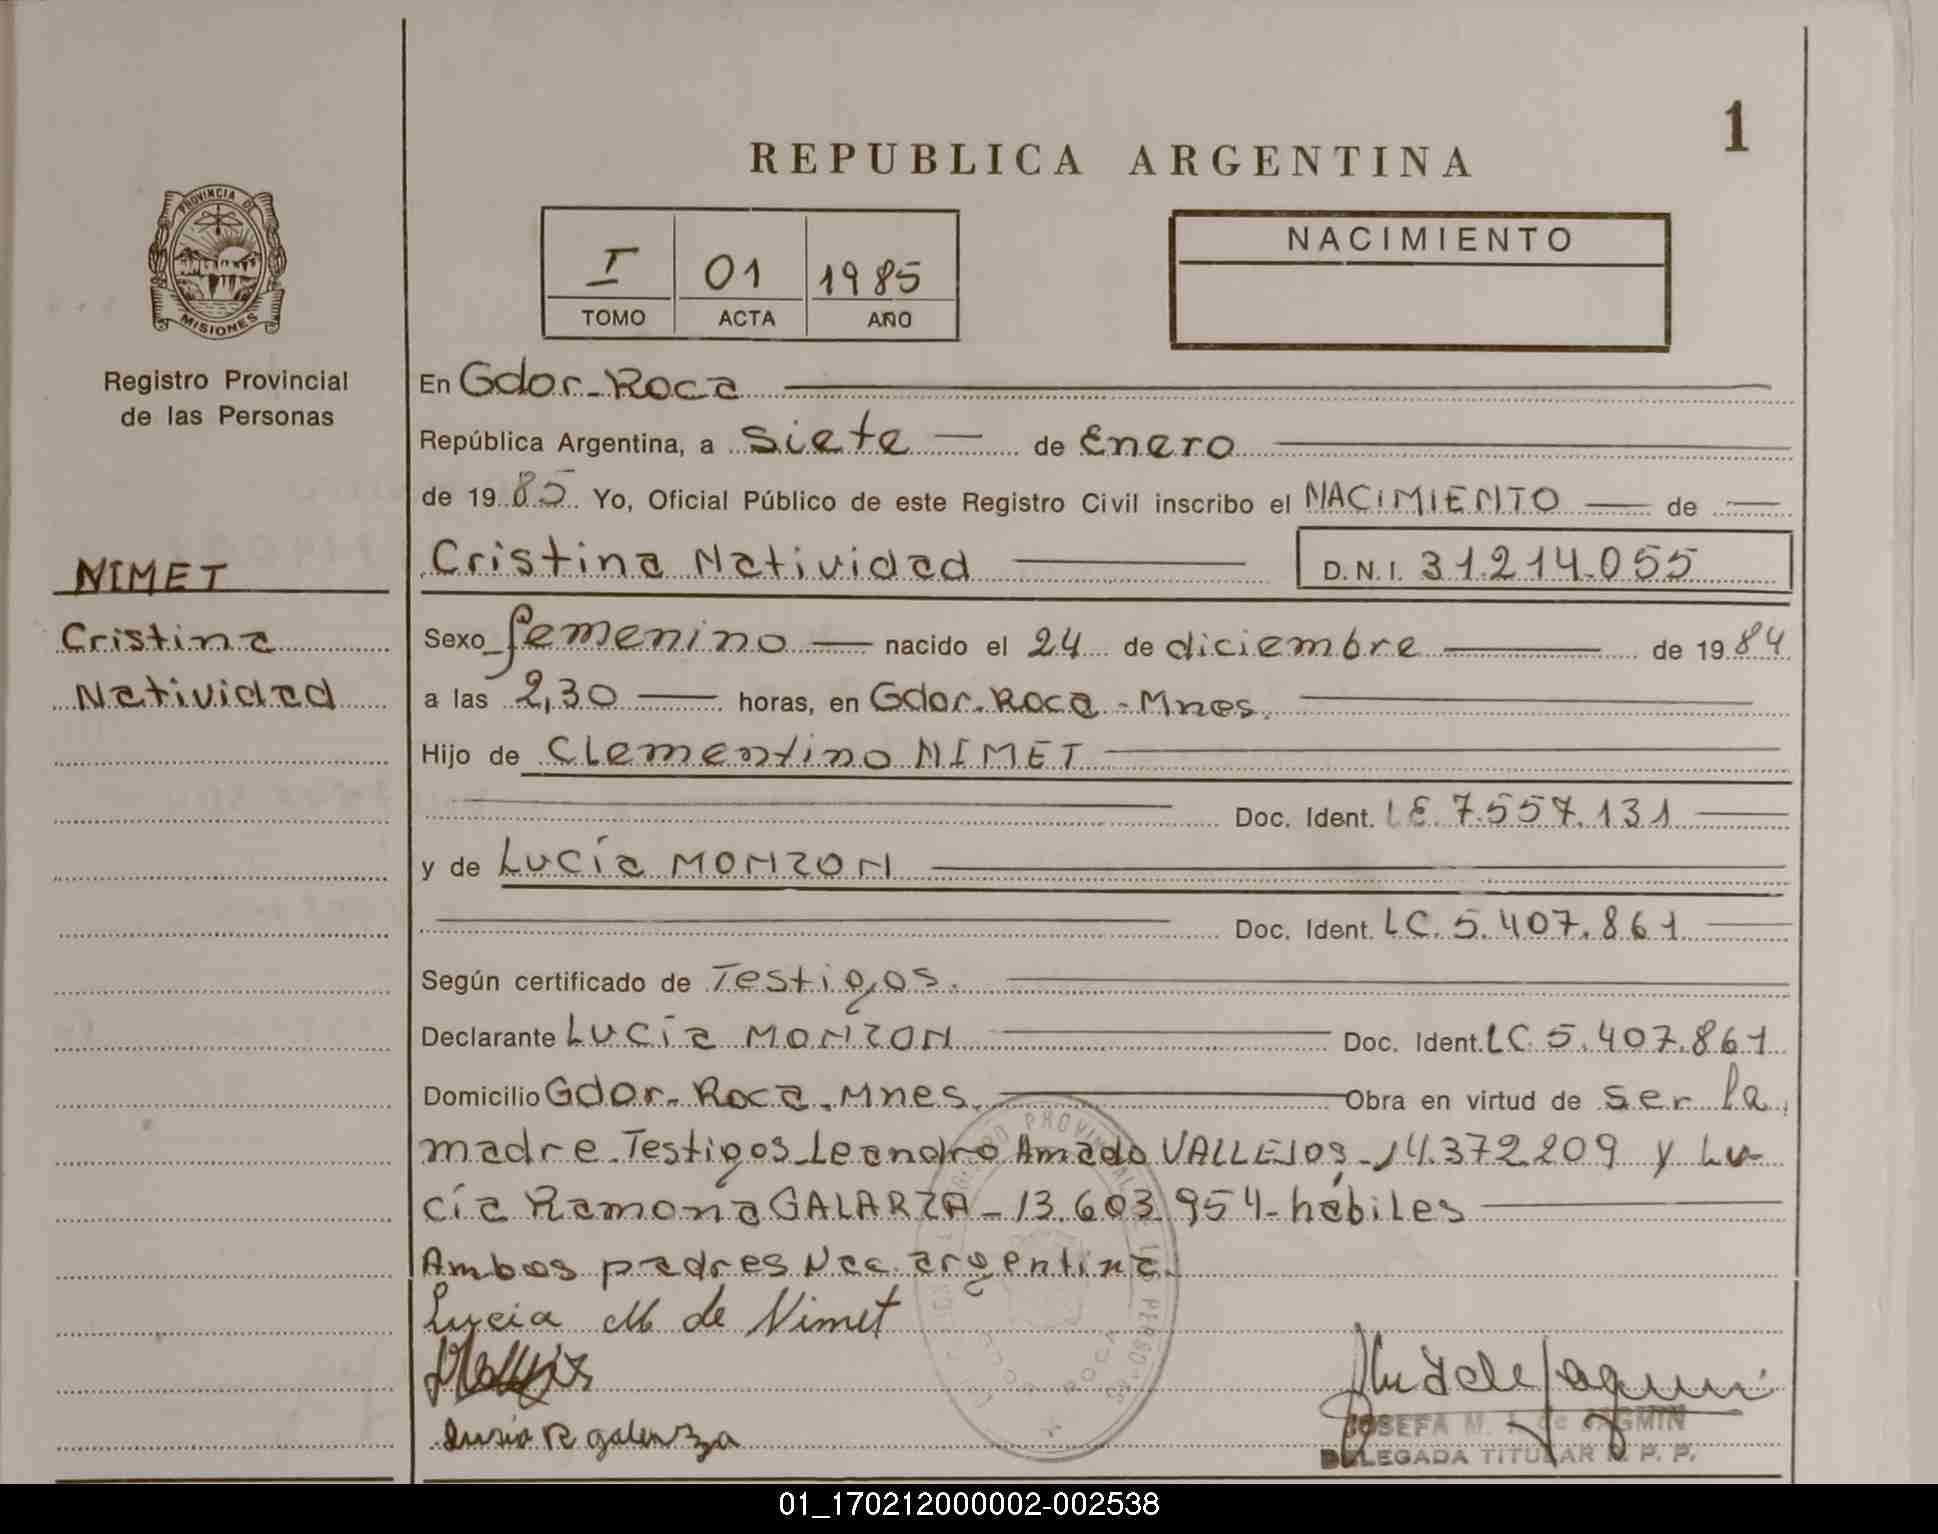 1
REPUBLICA ARGENTINA
PROVINCIA DE
MISIONES
Registro Provincial
de las Personas
I 01 1985
TOMO ACTA AÑO
NACIMIENTO
NIMET
Cristina
Natividad
En Gdor. Roca
República Argentina, a siete de Enero
de 1985 Yo, Oficial Público de este Registro Civil inscribo el NACIMIENTO de
Cristina Natividad D.N.I. 31.214.055
Sexo femenino nacido el 24 de diciembre de 1984
a las 2,30 horas, en Gdor. Roca - Mnes.
Hijo de Clementino NIMET
Doc. Ident. LE. 7.557.131
y de Lucía MONZON
Doc. Ident. LC. 5.407.861
Según certificado de Testigos.
Declarante Lucía MONZON Doc. Ident. LC. 5.407.861
Domicilio Gdor. Roca. Mnes. Obra en virtud de ser la
madre. Testigos Leandro Amado VALLEJOS - 14.372.209 y Lu-
cía Ramona GALARZA - 13.603.954 - hábiles
Ambos padres Nac. argentina.
Lucia M de Nimet
Lucia R galarza
JOSEFA M. de JAGMIN
DELEGADA TITULAR R. P. P.
01_170212000002-002538